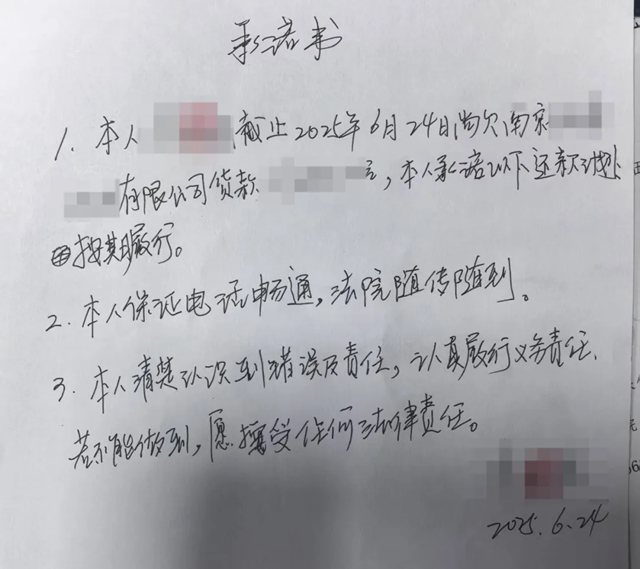 承诺书
1. 本人 截止2025年6月24日尚欠南京
有限公司货款 元，本人承诺以下还款计划
按期履行。
2. 本人保证电话畅通，法院随传随到。
3. 本人清楚认识到错误及责任，认真履行义务责任.
若不能做到，愿接受任何法律责任。
2025.6.24